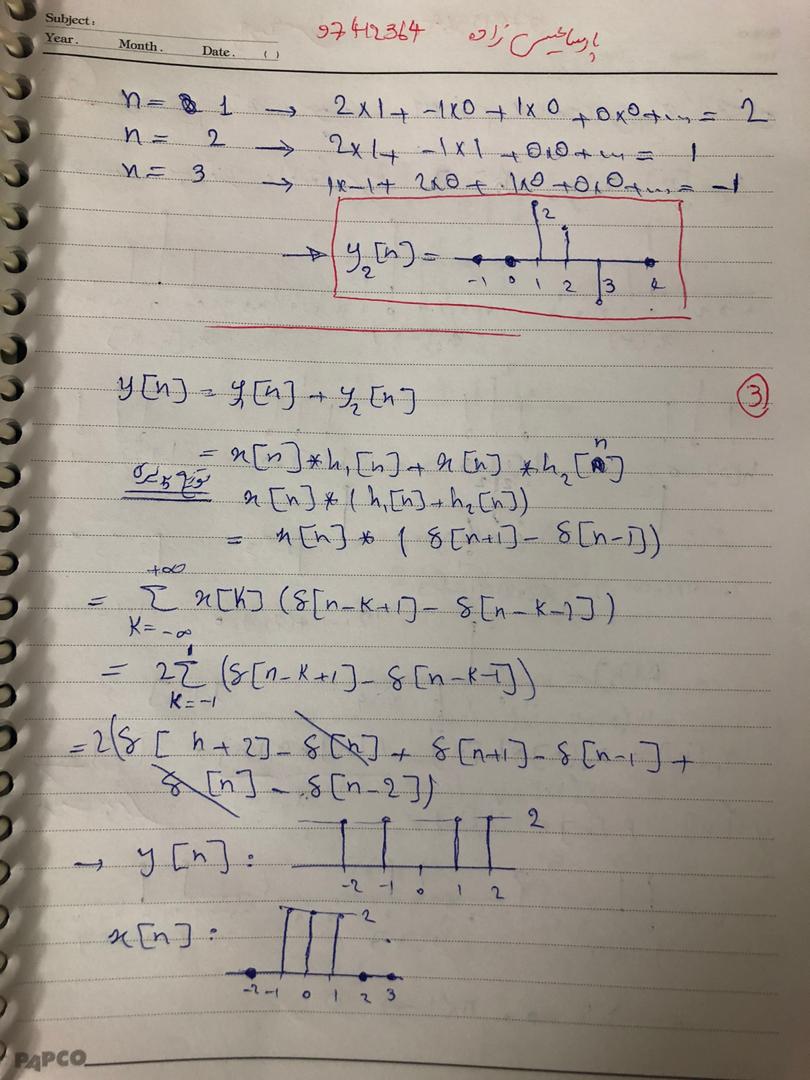 Subject:
Year. Month. Date. ( )
97412364 پارسا عیسی زاده
n = 1 → 2×1 + -1×0 + 1×0 + 0×0 + ... = 2
n = 2 → 2×1 + -1×1 + 0×0 + ... = 1
n = 3 → 1×-1 + 2×0 + 1×0 + 0×0 + ... = -1
→ y₂[n] =
2
-1 0 1 2 3 4
y[n] = y₁[n] + y₂[n]
3
= x[n] * h₁[n] + x[n] * h₂[n]
x[n] * (h₁[n] + h₂[n])
= x[n] * (δ[n+1] - δ[n-1])
= Σ_{K=-∞}^{+∞} x[K] (δ[n-K+1] - δ[n-K-1])
= 2 Σ_{K=-1}^{1} (δ[n-K+1] - δ[n-K-1])
= 2(δ[n+2] - δ[n] + δ[n+1] - δ[n-1] +
δ[n] - δ[n-2])
→ y[n]: 2
-2 -1 0 1 2
x[n]: 2
-2 -1 0 1 2 3
PAPCO